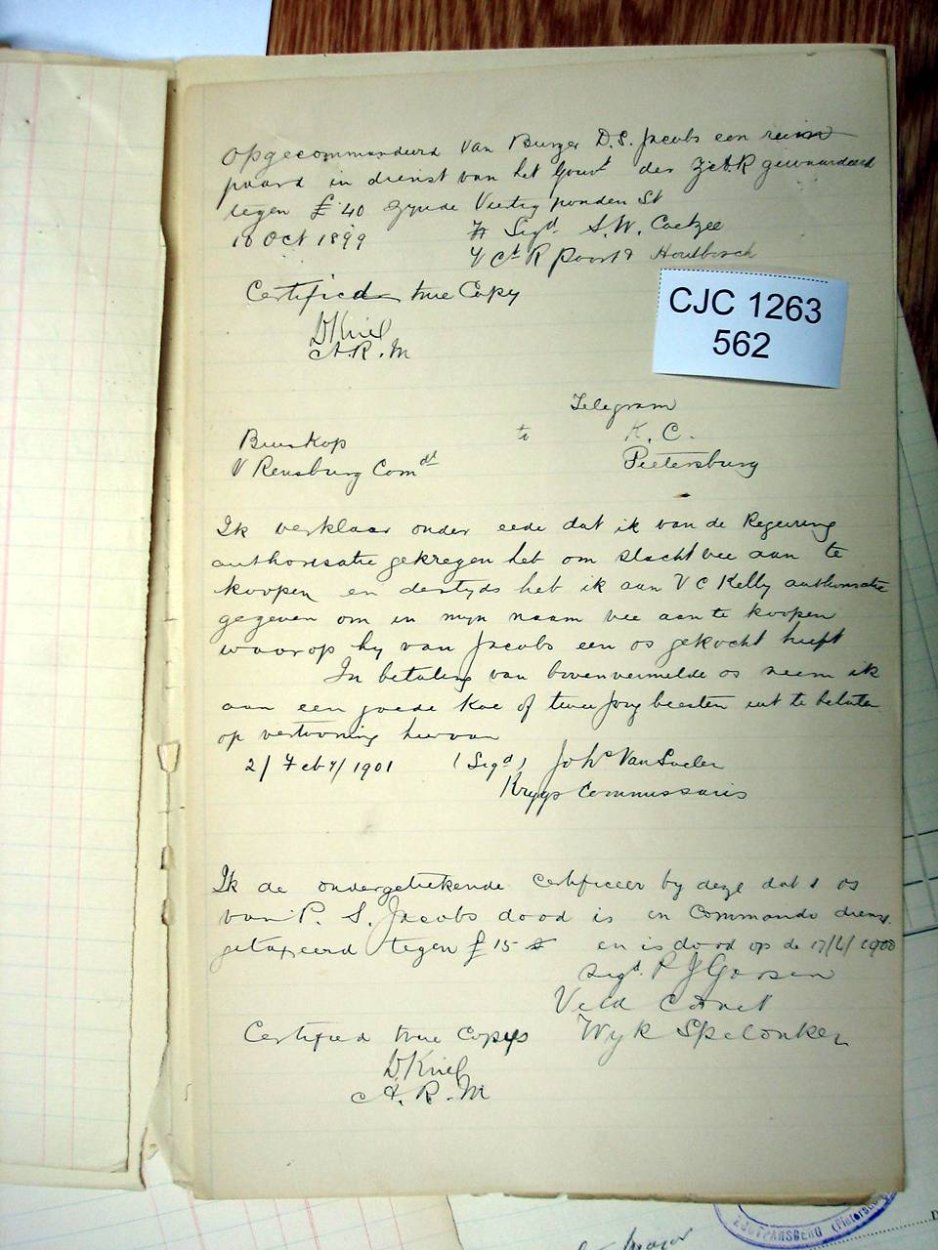 Opgecommandeerd van Burger D.S. Jacobs een ruin
paard in dienst van het Gouvt der Z.A.R gewaardeerd
tegen £ 40 zynde Veertig ponden St
18 Oct 1899 Sigd. S.W. Coetzee
V Ct R Poort & Houtbosch
Certified true Copy
DKriel
A.R.M
CJC 1263
562
Telegram
Buiskop to K.C.
V Rensburg Comdt Pietersburg
Ik verklaar onder eede dat ik van de Regeering
authorisatie gekregen heb om slachtvee aan te
koopen en destyds heb ik aan V C Kelly authorisatie
gegeven om in myn naam vee aan te koopen
waarop hy van Jacobs een os gekocht heeft
In betaling van bovenvermelde os neem ik
aan een goede koe of twee jong beesten uit te betalen
op vertooning hiervan
2/Feby/1901 (Sigd) Johs Van
Krygs Commissaris
Ik de ondergetekende certificeer by deze dat 1 os
van P. S. Jacobs dood is in Commando dienst
getaxeerd tegen £ 15 en is dood op de 17/4/1900
Sigd. P J
Veld Cornet
Certified true Copy Wyk Spelonken
DKriel
A.R.M
ZOUTPANSBERG